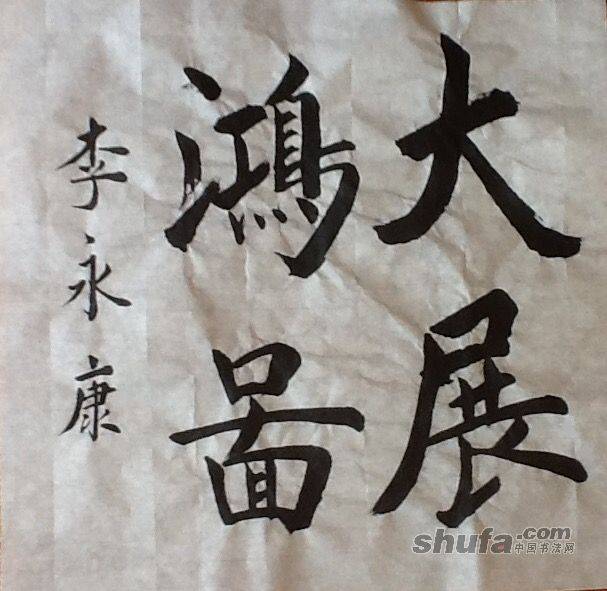 大展
鴻啚
李永康
shufa.com
中国书法网